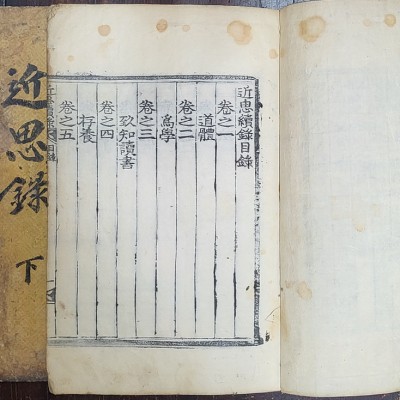 近思續錄目錄
卷之一
道體
卷之二
爲學
卷之三
致知讀書
卷之四
存養
卷之五
近思錄
下